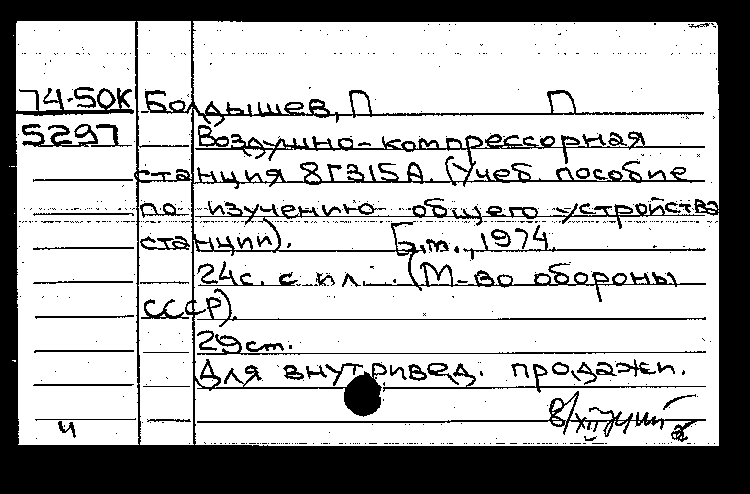 74-50К Болдышев, П П
5297 Воздушно-компрессорная
станция 8Г315А. (Учеб. пособие
по изучению общего устройства
станции). Б.м., 1974.
24с. с ил. (М-во обороны
СССР).
29 см.
Для внутривед. продажи.
8/XII
ч